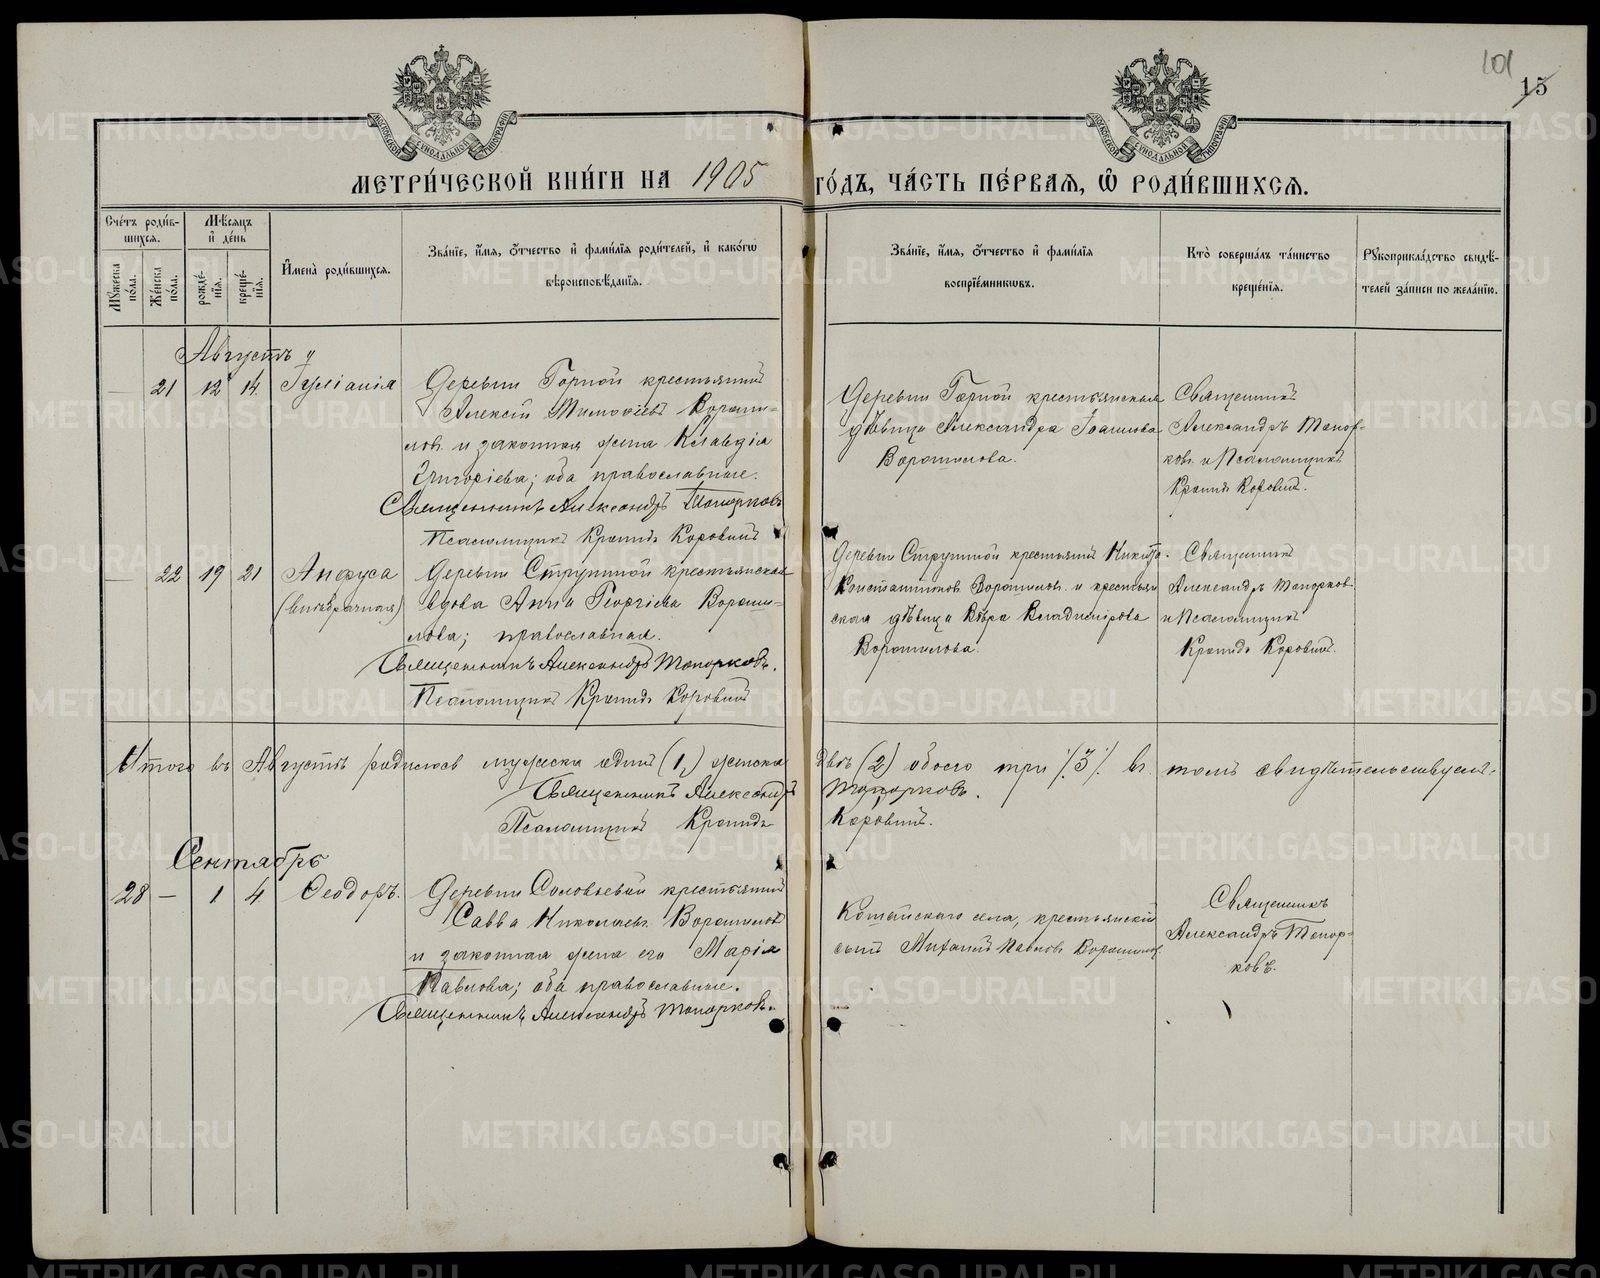 101
15
МОСКОВСКОЙ СУНОДАЛЬНОЙ ТИПОГРАФІИ
МОСКОВСКОЙ СУНОДАЛЬНОЙ ТИПОГРАФІИ
МЕТРИ́ЧЕСКОЙ КНИ́ГИ НА 1905 ГО́ДЪ, ЧА́СТЬ ПЕ́РВАЯ, Ѡ РОДИ́ВШИХСЯ.
Сче́тъ роди́в-
шихся.
Мѣсяцъ
и҆ де́нь
Мꙋ́жеска
по́ла.
Же́нска
по́ла.
рожде́-
нїѧ.
креще́-
нїѧ.
И҆мена̀ роди́вшихся.
Зва́нїе, и҆́мѧ, ѻ҆́тчество и҆ фами́лїѧ роди́телей, и҆ како́гѡ
вѣроисповѣ́данїѧ.
Зва́нїе, и҆́мѧ, ѻ҆́тчество и҆ фами́лїѧ
воспрїе́мникѡвъ.
Кто̀ соверша́лъ та́инство
креще́нїѧ.
Рꙋкоприкла́дство свидѣ́-
телей за́писи по жела́нїю.
Августъ
— 21 12 14 Іуліанія
Деревни Горной крестьянинъ
Алексій Тимоѳіевъ Вороши-
ловъ и законная жена Клавдія
Григоріева; оба православные.
Священникъ Александръ Топорковъ
Псаломщикъ Кронидъ Коровинъ
Деревни Горной крестьянская
дѣвица Александра Іоаннова
Ворошилова.
Священникъ
Александръ Топор-
ковъ и Псаломщикъ
Кронидъ Коровинъ.
— 22 19 21 Анфуса
(внебрачная)
Деревни Струниной крестьянская
вдова Анна Георгіева Вороши-
лова; православная.
Священникъ Александръ Топорковъ.
Псаломщикъ Кронидъ Коровинъ
Деревни Струниной крестьянинъ Никита
Константиновъ Ворошиловъ и крестьян
ская дѣвица Вѣра Владимірова
Ворошилова.
Священникъ
Александръ Топорковъ
и Псаломщикъ
Кронидъ Коровинъ.
Итого въ Августѣ родилось мужеска одинъ (1) женска двѣ (2) обоего три /3/. въ томъ свидѣтельствуемъ:
Священникъ Александръ Топорковъ.
Псаломщикъ Кронидъ Коровинъ.
Сентябрь
28 — 1 4 Ѳеодоръ.
Деревни Соловьевой крестьянинъ
Савва Николаевъ Ворошиловъ
и законная жена его Марія
Павлова; оба православные.
Священникъ Александръ Топорковъ.
села, крестьянскій
сынъ Михаилъ Павловъ Ворошиловъ.
Священникъ
Александръ Топор-
ковъ.
METRIKI.GASO-URAL.RU